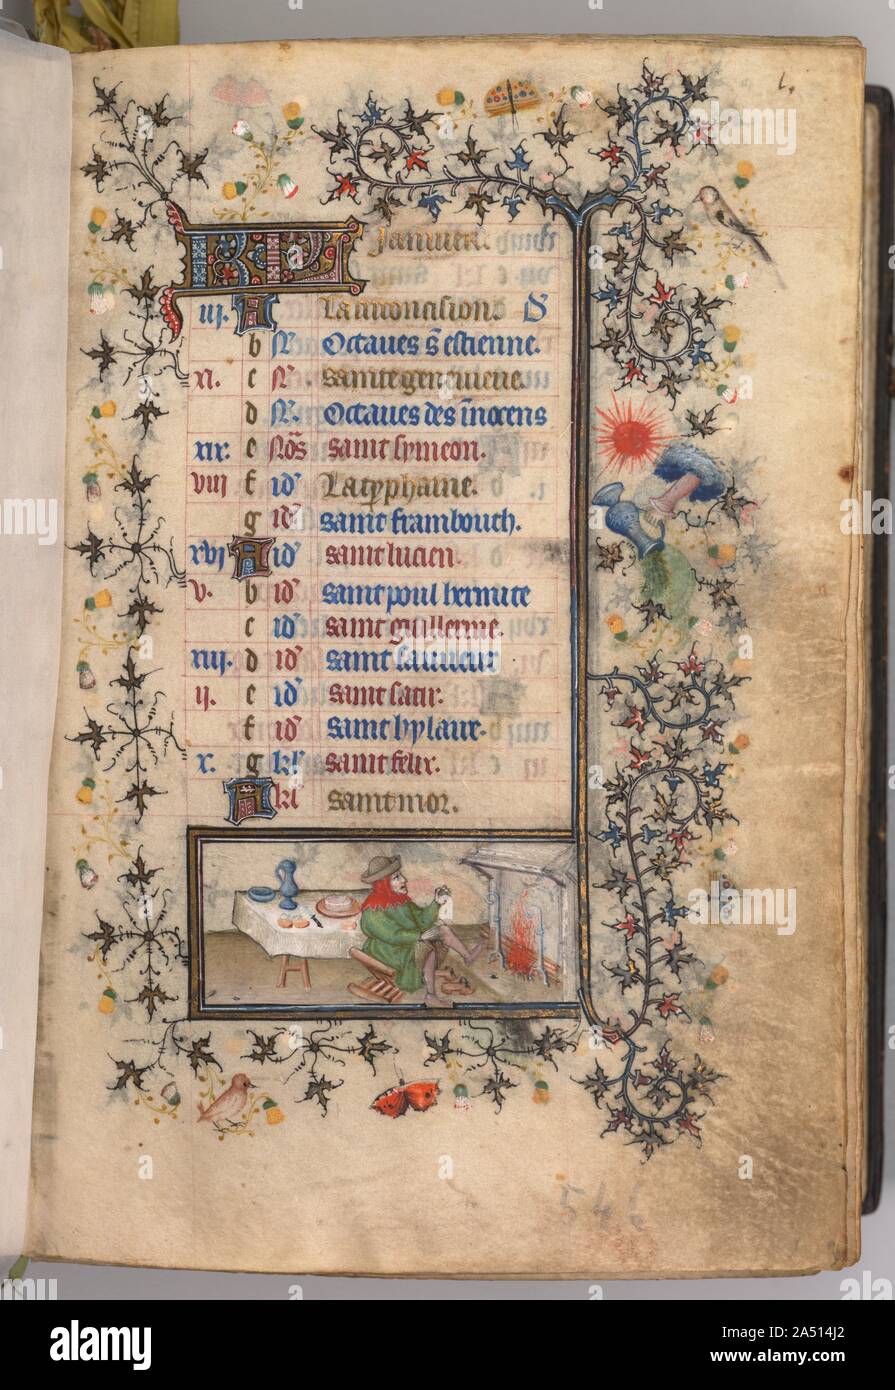 KL Januier.
iii. A La circoncision D
b N. Octaues s̄ estienne.
xi. c N. sainte geneuieue.
d N. Octaues des īnocens
xix. e Nōs saint symeon.
viii f id' La typhaine.
g id' saint frambouch.
xvi A id' saint lucien.
v. b id' saint poul hermite
c id' saint guillerme.
xiii. d id' saint sauueur
ii. e id' saint satir.
f id' saint hylaire.
x. g kl' saint felix.
A kl' saint mor.
546
alamy
Image ID: 2A514J2
www.alamy.com